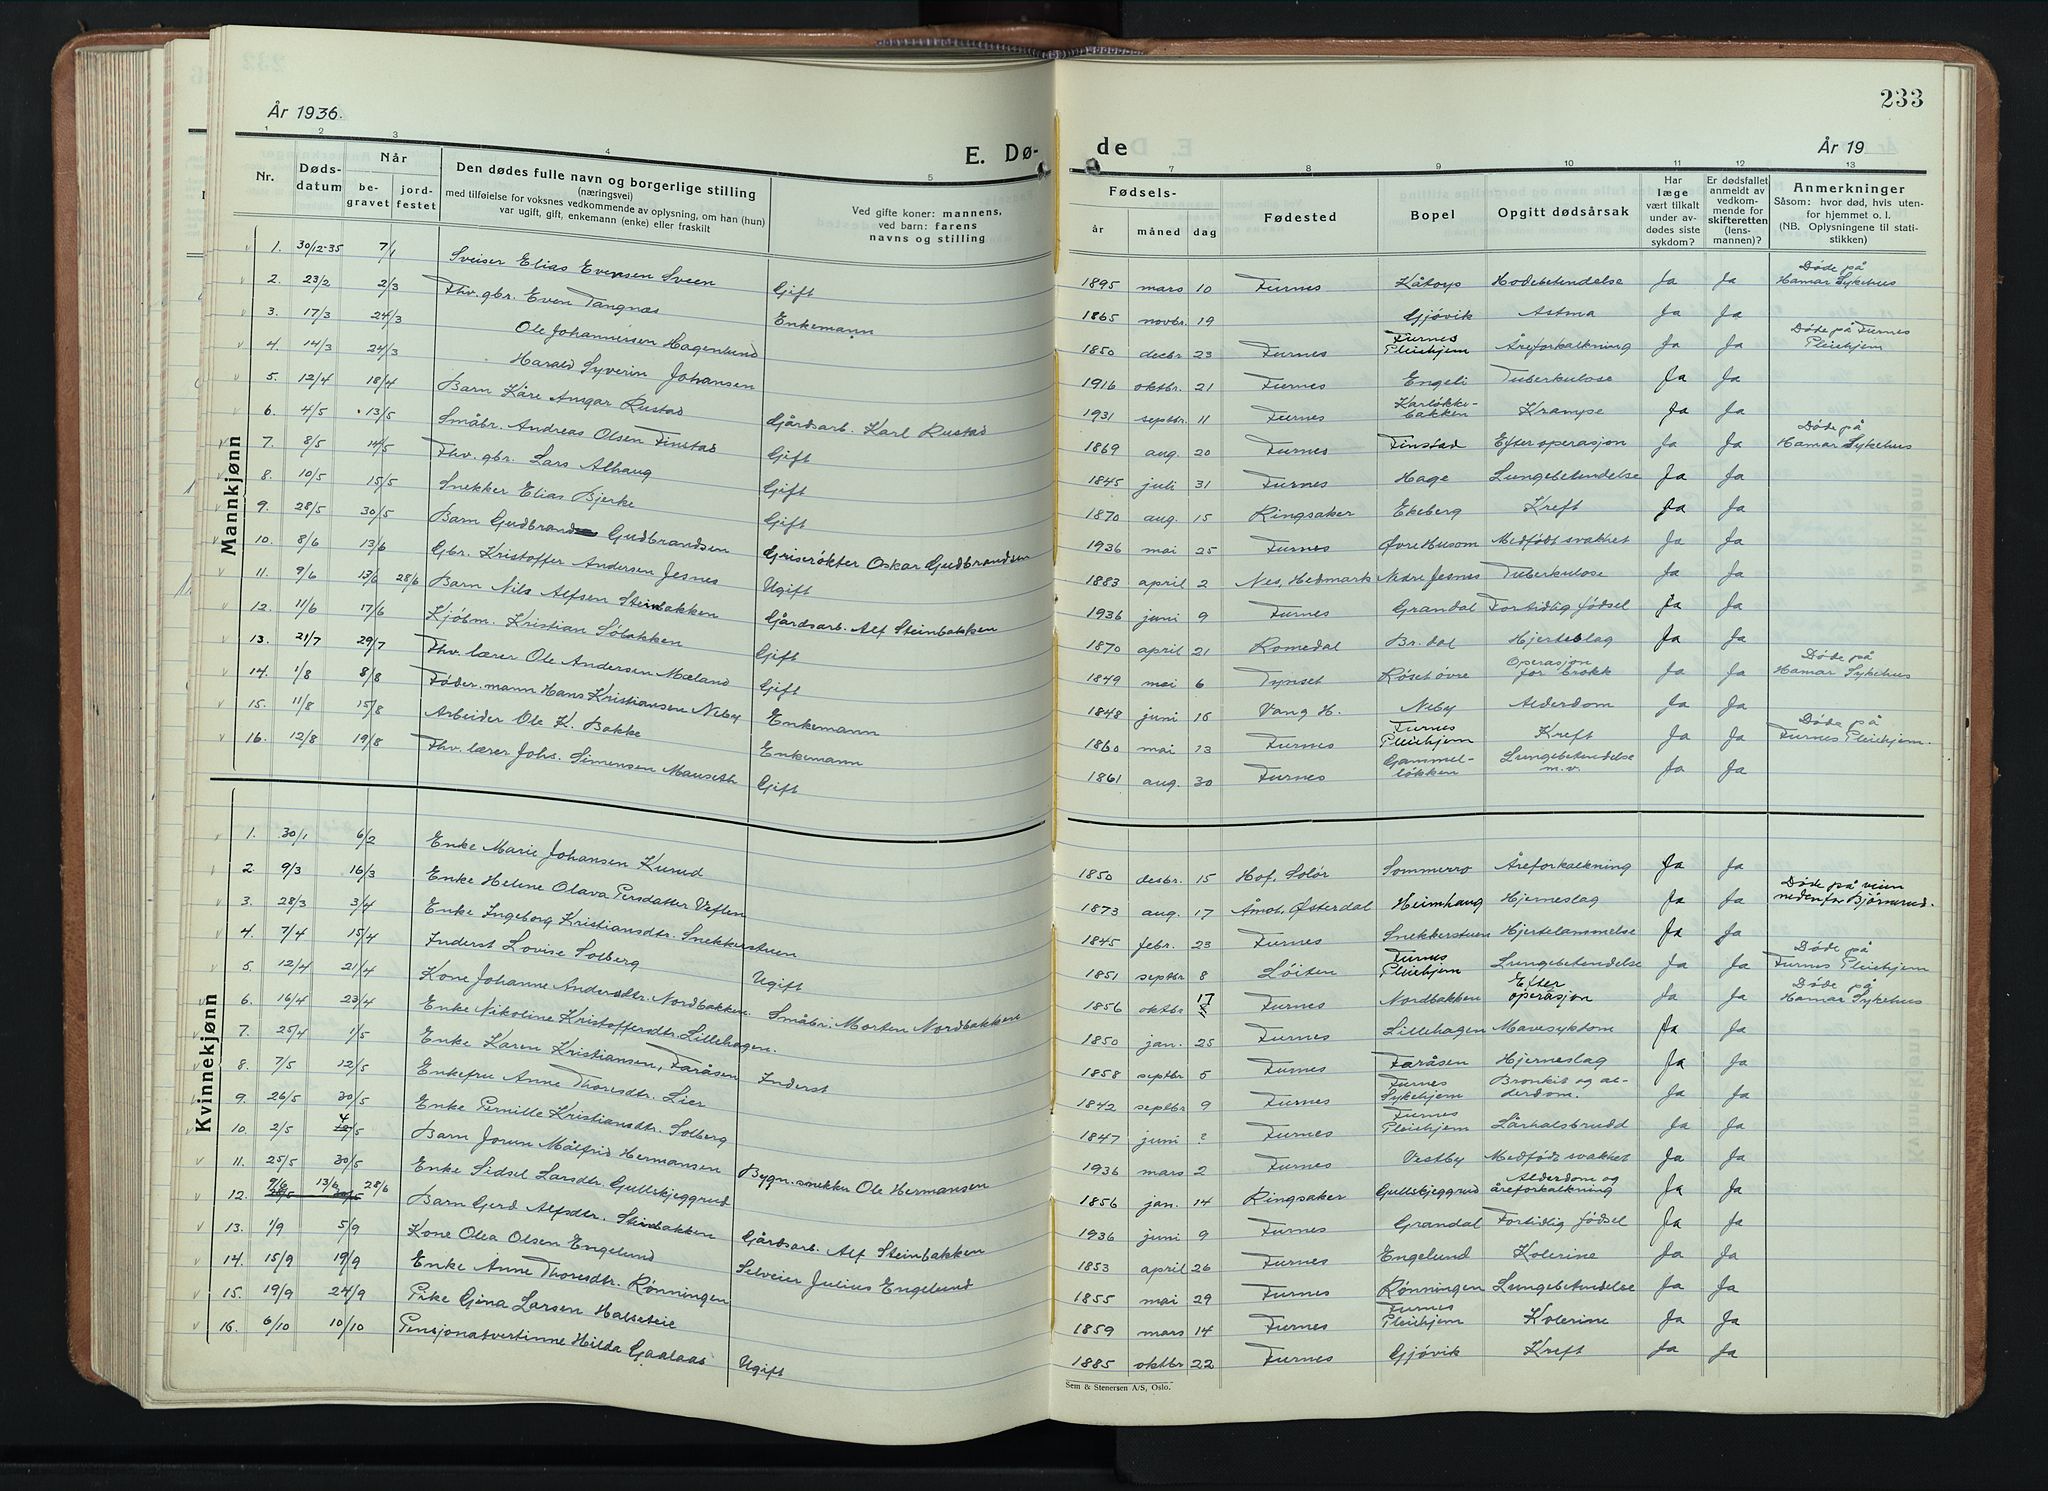 233
År 1936.
E. Dø-
de
År 19
1 2 3 4 5
7 8 9 10 11 12 13
Nr.
Døds-
datum
Når
be-
gravet
jord-
festet
Den dødes fulle navn og borgerlige stilling
(næringsvei)
med tilføielse for voksnes vedkommende av oplysning, om han (hun)
var ugift, gift, enkemann (enke) eller fraskilt
Ved gifte koner: mannens,
ved barn: farens
navns og stilling
Fødsels-
år måned dag
Fødested
Bopel
Opgitt dødsårsak
Har
læge
vært tilkalt
under av-
dødes siste
sykdom?
Er dødsfallet
anmeldt av
vedkom-
mende for
skifteretten
(lens-
mannen)?
Anmerkninger
Såsom: hvor død, hvis uten-
for hjemmet o. l.
(NB. Oplysningene til stati-
stikken)
Mannkjønn
1. 30/12-35 7/1 Sveiser Elias Evensen Sveen Gift 1895 mars 10 Furnes Kåtorp Hodebetendelse Ja Ja Døde på Hamar Sykehus
2. 23/2 2/3 Fhv. gbr. Even Tangnes Enkemann 1865 novbr. 19 Gjøvik Astma Ja Ja
3. 17/3 24/3 Ole Johannersen Hagenlund 1850 decbr 23 Furnes Furnes Pleiehjem Åreforkalkning Ja Ja Døde på Furnes Pleiehjem
4. 14/3 24/3 Harald Syverin Johansen 1916 oktbr. 21 Furnes Engeli Tuberkulose Ja Ja
5. 12/4 18/4 Barn Kåre Ansgar Rustad Gårdsarb. Karl Rustad 1931 septbr. 11 Furnes Karløkke-bakken Krampe Ja Ja
6. 4/5 13/5 Småbr. Andreas Olsen Finstad Gift 1869 aug. 20 Furnes Finstad Efter operasjon Ja Ja Døde på Hamar Sykehus
7. 8/5 14/5 Fhv. gbr. Lars Alhaug Gift 1845 juli 31 Furnes Hage Lungebetendelse Ja Ja
8. 10/5 15/5 Snekker Elias Bjerke Gift 1870 aug. 15 Ringsaker Ekeberg Kreft Ja Ja
9. 28/5 30/5 Barn Gudbrand Gudbrandsen Griserøkter Oskar Gudbrandsen 1936 mai 25 Furnes Øvre Husom Medfødt svakhet Ja Ja
10. 8/6 13/6 Gbr. Kristoffer Andersen Jesnes Ugift 1883 april 2 Nes, Hedmark Nedre Jesnes Tuberkulose Ja Ja
11. 9/6 13/6 28/6 Barn Nils Alfsen Steinbakken Gårdsarb. Alf Steinbakken 1936 juni 9 Furnes Grandal Fortidlig fødsel Ja Ja
12. 11/6 17/6 Kjøbm. Kristian Solbakken Gift 1870 april 21 Romedal Br.dal Hjerteslag Ja Ja
13. 21/7 29/7 Fhv. lærer Ole Andersen Mæland Gift 1849 mai 6 Tynset Røset øvre Operasjon for brokk Ja Ja Døde på Hamar Sykehus
14. 1/8 8/8 Føder.mann Hans Kristiansen Neby Enkemann 1848 juni 16 Vang H. Neby Alderdom Ja Ja
15. 11/8 15/8 Arbeider Ole K. Bakke Enkemann 1860 mai 13 Furnes Furnes Pleiehjem Kreft Ja Ja Døde på Furnes Pleiehjem.
16. 12/8 19/8 Fhv. lærer Johs. Simensen Mauseth Gift 1861 aug. 30 Furnes Gammel-løkken Lungebetendelse m.v. Ja Ja
Kvinnekjønn
1. 30/1 6/2 Enke Marie Johansen Kurud 1850 desbr. 15 Hof, Solør Sommerro Åreforkalkning Ja Ja
2. 9/3 16/3 Enke Helene Olava Persdatter Veflen 1873 aug. 17 Åmot, Østerdal Heimhaug Hjerneslag Ja Ja Døde på veien nedenfor Bjørnerud.
3. 28/3 3/4 Enke Ingeborg Kristiansdtr. Snekkerstuen 1845 febr. 23 Furnes Snekkerstuen Hjertelammelse Ja Ja
4. 7/4 15/4 Inderst Lovise Solberg Ugift 1851 septbr 8 Løiten Furnes Pleiehjem Lungebetendelse Ja Ja Døde på Furnes Pleiehjem
5. 12/4 21/4 Kone Johanne Andersdtr. Nordbakken Småbr. Morten Nordbakken 1856 oktbr 17 Furnes Nordbakken Efter operasjon Ja Ja Døde på Hamar Sykehus
6. 16/4 23/4 Enke Nikoline Kristoffersdtr. Lillehagen. 1850 jan. 25 Furnes Lillehagen Mavesykdom Ja Ja
7. 25/4 1/5 Enke Karen Kristiansen, Faråsen Inderst 1858 septbr 5 Furnes Faråsen Hjerneslag Ja Ja
8. 7/5 12/5 Enkefru Anne Thoresdtr. Lier 1842 septbr 9 Furnes Furnes Sykehjem Bronkit og al-derdom. Ja Ja
9. 26/5 30/5 Enke Pernille Kristiansdtr. Solberg 1847 juni ? Furnes Furnes Pleiehjem Lårhalsbrudd Ja Ja
10. 2/5 4/5 Barn Jorun Målfrid Hermansen Bygn.snekker Ole Hermansen 1936 mars 2 Furnes Vestby Medfødt svakhet Ja Ja
11. 25/5 30/5 Enke Sidsel Larsdtr. Gullskjeggrud 1856 jan. 14 Ringsaker Gullskjeggrud Alderdom og åreforkalkning Ja Ja
12. 9/6 13/6 28/6 Barn Gerd Alfsdtr. Steinbakken Gårdsarb. Alf Steinbakken 1936 juni 9 Furnes Grandal Fortidlig fødsel Ja Ja
13. 1/9 5/9 Kone Olea Olsen Engelund Selveier Julius Engelund 1853 april 26 Furnes Engelund Kolerine Ja Ja
14. 15/9 19/9 Enke Anne Thoresdtr. Rønningen 1855 mai 29 Furnes Rønningen Lungebetendelse Ja Ja
15. 19/9 24/9 Pike Gina Larsen Halseteie 1859 mars 14 Furnes Furnes Pleiehjem Kolerine Ja Ja
16. 6/10 10/10 Pensjonatvertinne Hilda Gaalaas Ugift 1885 oktbr 22 Furnes Gjøvik Kreft Ja Ja
Sem & Stenersen A/S, Oslo.